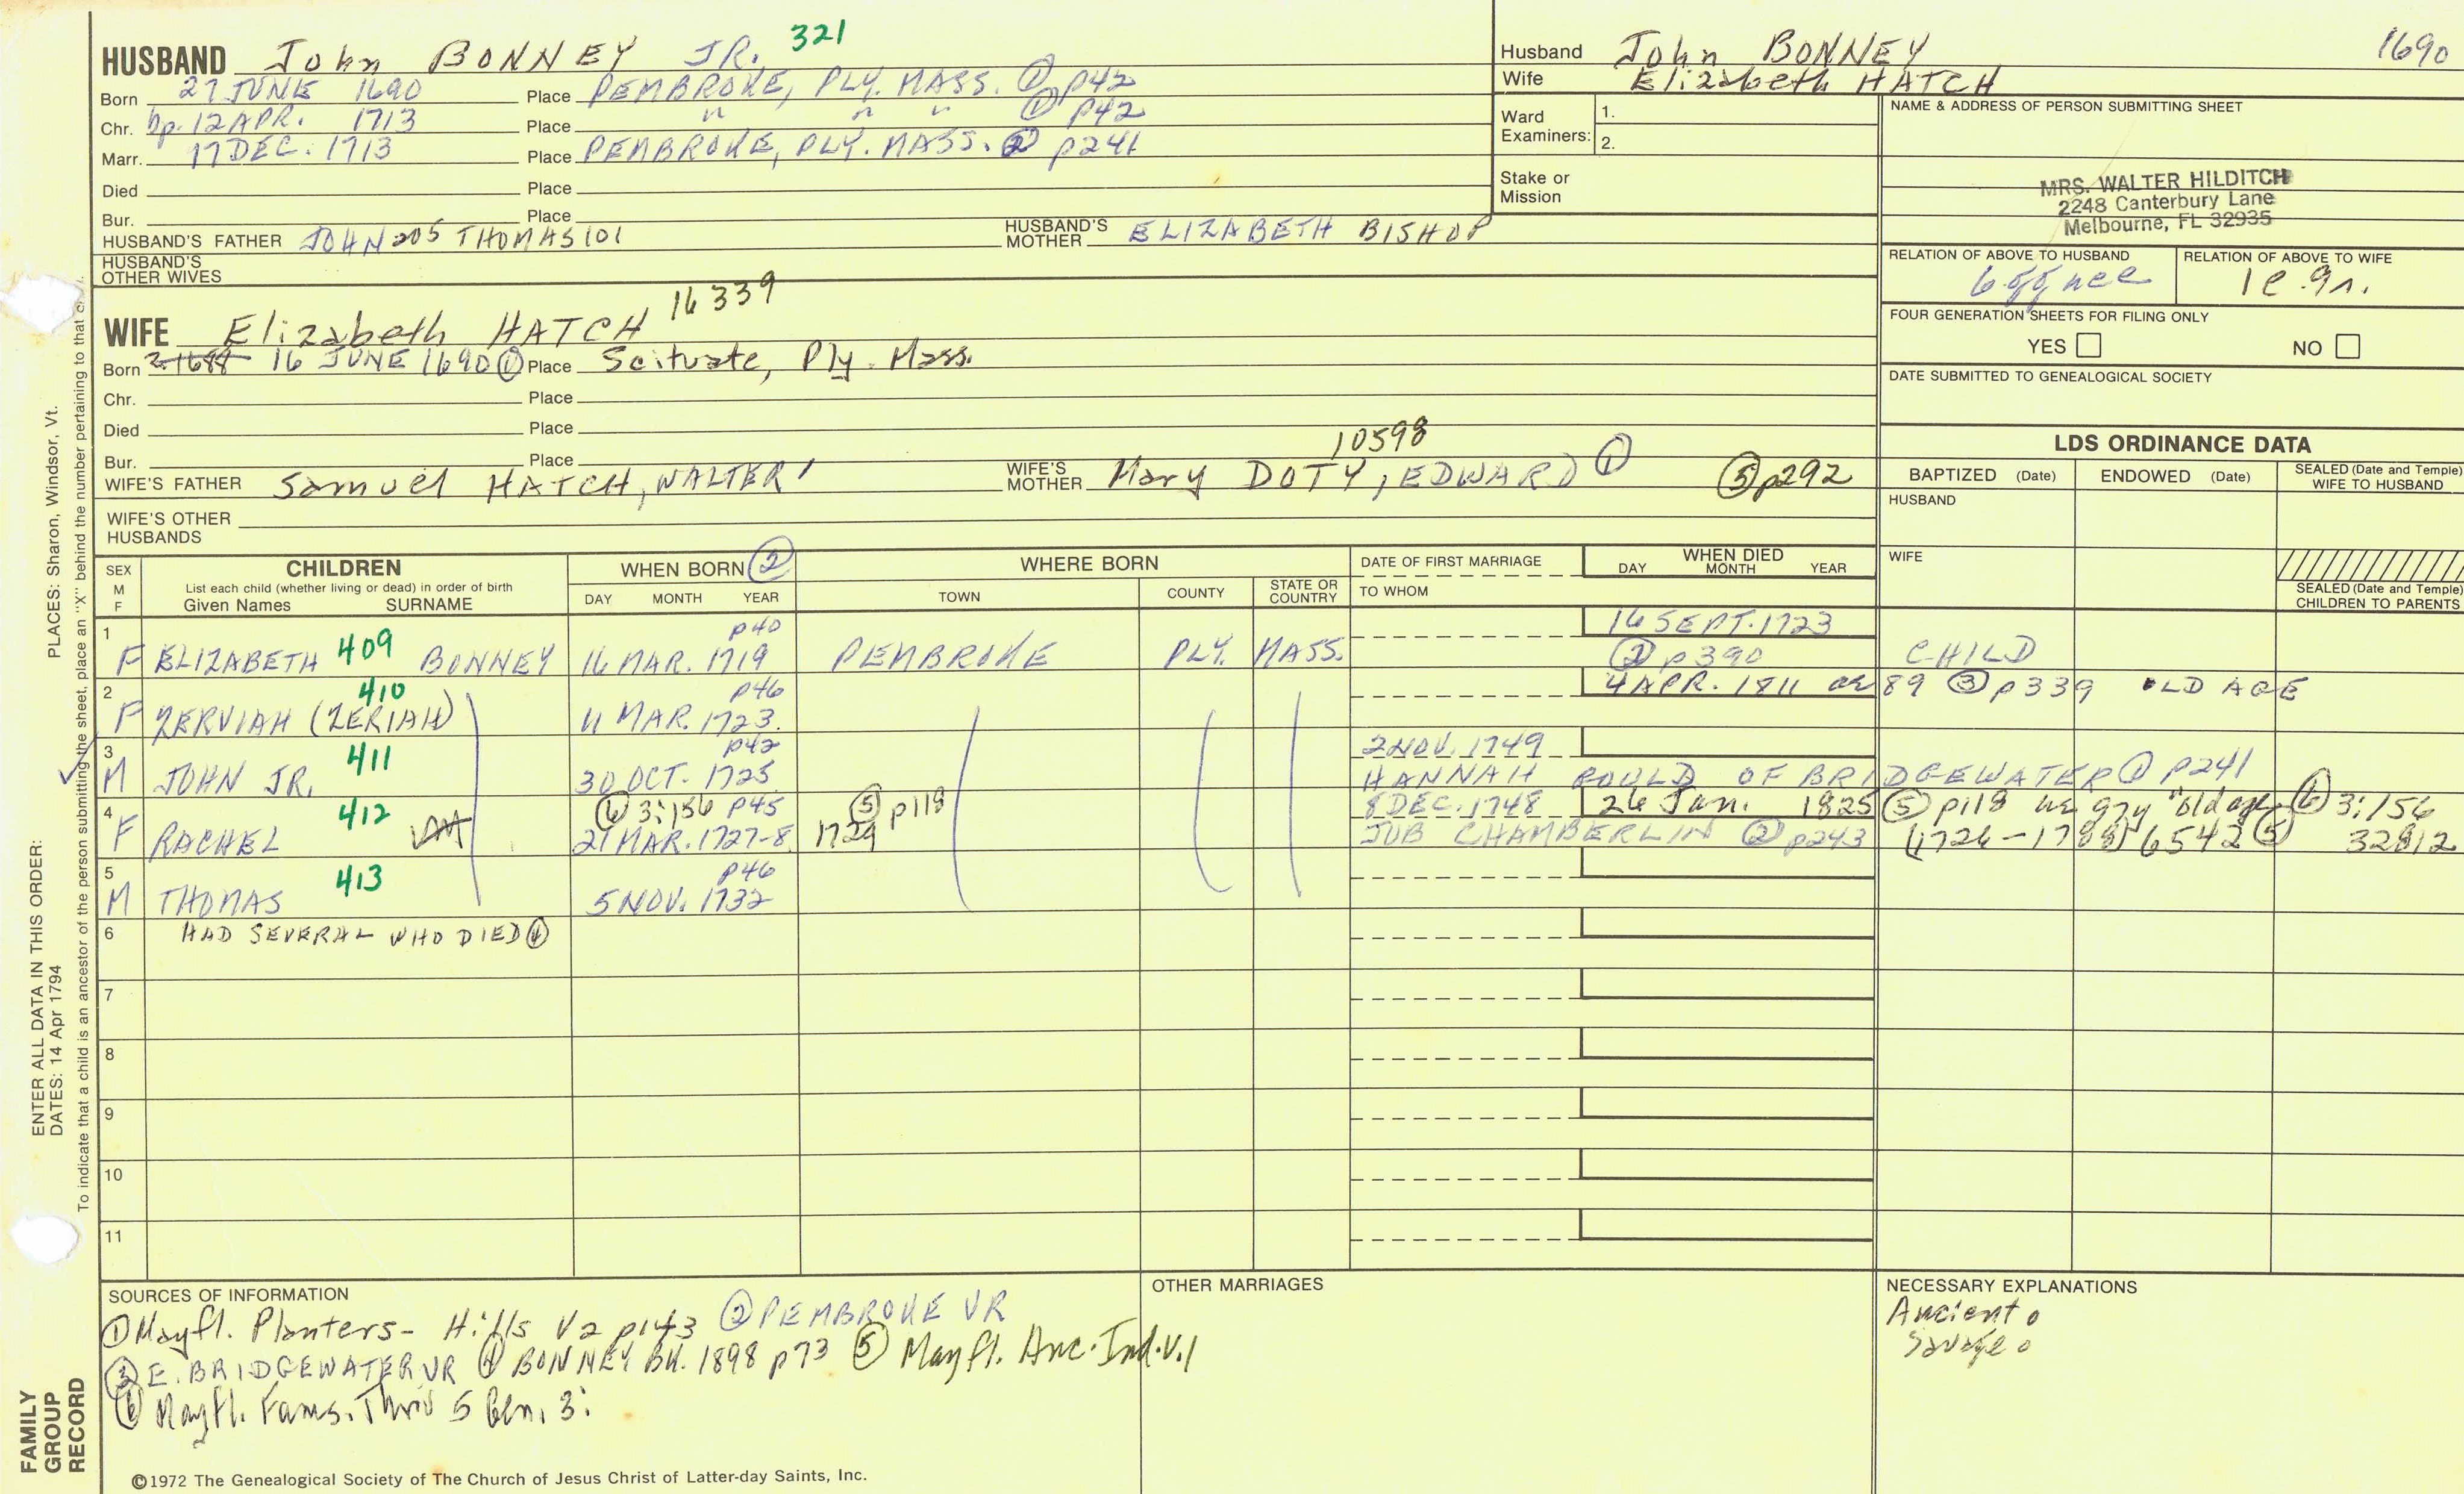 HUSBAND John BONNEY JR. 321
Born 27 JUNE 1690 Place PEMBROKE, PLY. MASS. ② p42
Chr. bp. 12 APR. 1713 Place " " " ② p42
Marr. 17 DEC. 1713 Place PEMBROKE, PLY. MASS. ② p241
Died Place
Bur. Place
HUSBAND'S FATHER JOHN 205 THOMAS 101 HUSBAND'S MOTHER ELIZABETH BISHOP
HUSBAND'S OTHER WIVES
Husband John BONNEY 1690
Wife Elizabeth HATCH
Ward Examiners: 1.
2.
Stake or Mission
NAME & ADDRESS OF PERSON SUBMITTING SHEET
MRS. WALTER HILDITCH
2248 Canterbury Lane
Melbourne, FL 32935
RELATION OF ABOVE TO HUSBAND RELATION OF ABOVE TO WIFE
FOUR GENERATION SHEETS FOR FILING ONLY
YES NO
DATE SUBMITTED TO GENEALOGICAL SOCIETY
WIFE Elizabeth HATCH 16339
Born 16 JUNE 1690 ① Place Scituate, Ply. Mass.
Chr. Place
Died Place
Bur. Place
10598
WIFE'S FATHER Samuel HATCH, WALTER' WIFE'S MOTHER Mary DOTY, EDWARD ① ⑤ p292
WIFE'S OTHER HUSBANDS
LDS ORDINANCE DATA
BAPTIZED (Date) ENDOWED (Date) SEALED (Date and Temple) WIFE TO HUSBAND
HUSBAND
WIFE
SEALED (Date and Temple) CHILDREN TO PARENTS
SEX M F
CHILDREN
List each child (whether living or dead) in order of birth
Given Names SURNAME
WHEN BORN ②
DAY MONTH YEAR
WHERE BORN
TOWN COUNTY STATE OR COUNTRY
DATE OF FIRST MARRIAGE
TO WHOM
WHEN DIED
DAY MONTH YEAR
1 p40 16 SEPT. 1723
F ELIZABETH 409 BONNEY 16 MAR. 1719 PEMBROKE PLY. MASS. ② p390 CHILD
2 410 p46 4 APR. 1811 ae 89 ③ p339 OLD AGE
F ZERVIAH (ZERIAH) 11 MAR. 1723
3 411 p42 2 NOV. 1749
M JOHN JR. 30 OCT. 1725 HANNAH GOULD OF BRIDGEWATER ② p241
4 412 ⑥ 3:156 p45 ⑤ p118 8 DEC. 1748 26 Jan. 1825 ⑤ p118 ae 97y "old age" ⑥ 3:156
F RACHEL 21 MAR. 1727-8 1729 JOB CHAMBERLIN ② p243 (1726-1788) 6542 ⑤ 32812
5 413 p46
M THOMAS 5 NOV. 1732
6 HAD SEVERAL WHO DIED ④
7
8
9
10
11
SOURCES OF INFORMATION
① Mayfl. Planters- Hills V2 p143 ② PEMBROKE VR
③ E. BRIDGEWATER VR ④ BONNEY BK. 1898 p73 ⑤ Mayfl. Anc. Ind. V.1
⑥ Mayfl. Fams. Thru 5 Gen. 3:
OTHER MARRIAGES
NECESSARY EXPLANATIONS
Ancient o
Savage o
©1972 The Genealogical Society of The Church of Jesus Christ of Latter-day Saints, Inc.
ENTER ALL DATA IN THIS ORDER: PLACES: Sharon, Windsor, Vt.
DATES: 14 Apr 1794
To indicate that a child is an ancestor of the person submitting the sheet, place an "X" behind the number pertaining to that
FAMILY GROUP RECORD